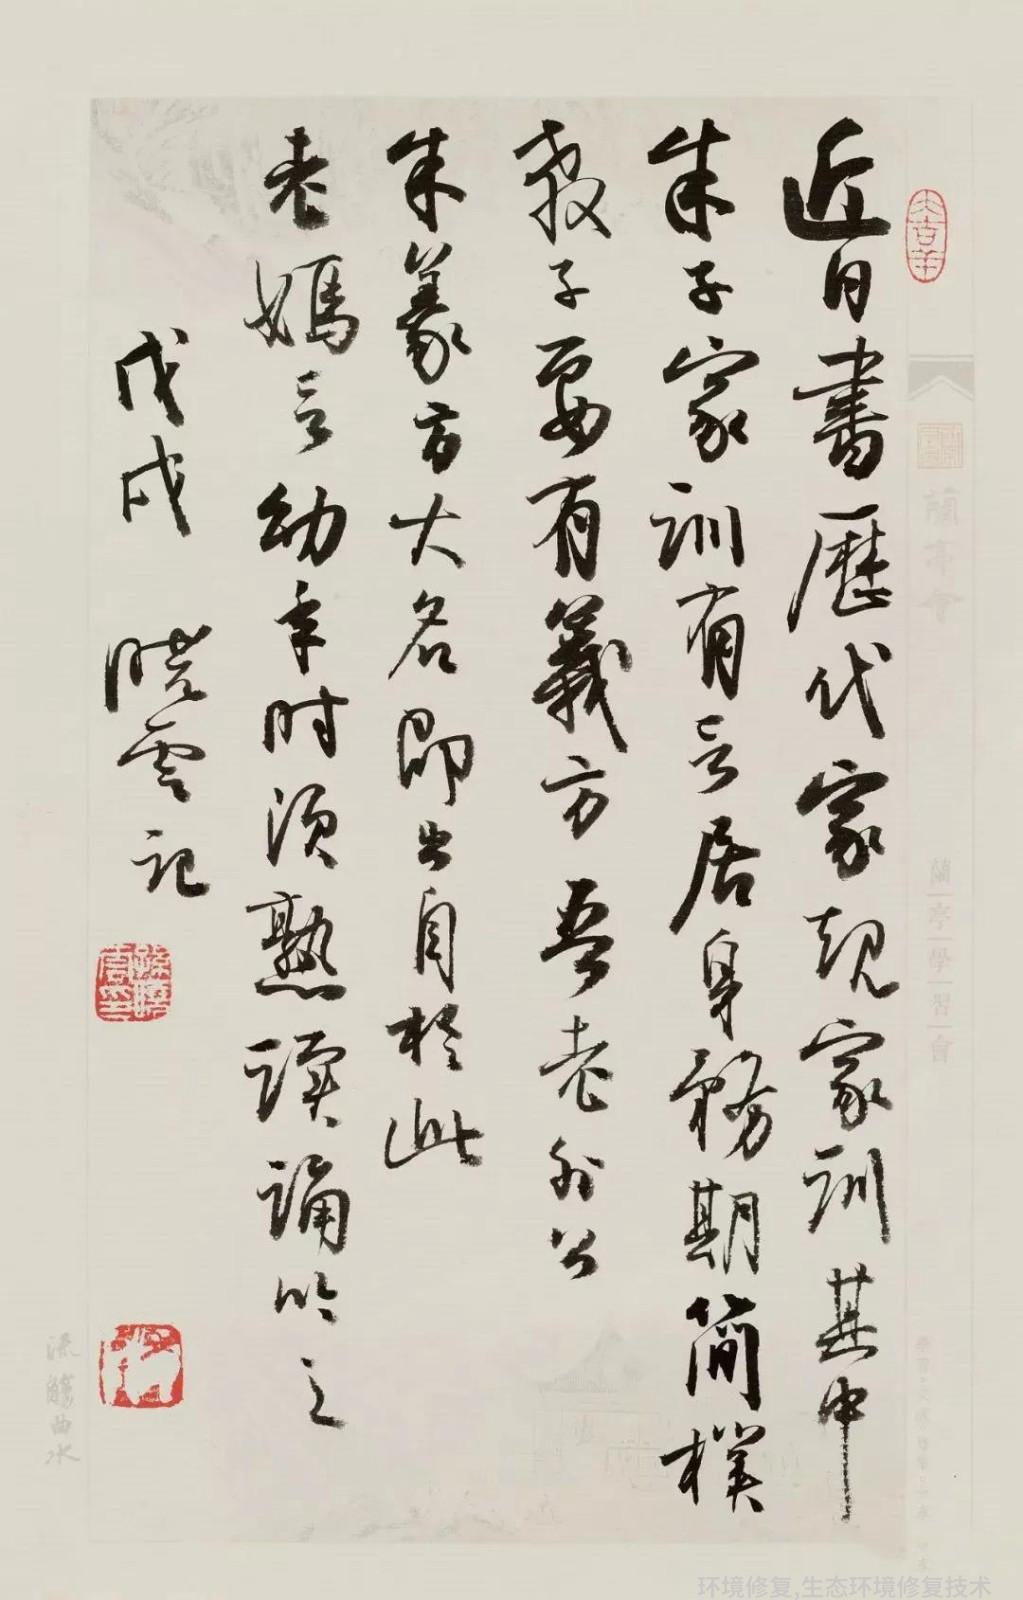 大吉羊
蘭亭會
蘭亭學習會
近日書歷代家規家訓其中
朱子家訓有言居身務期簡樸
教子要有義方吾老外公
朱義方大名即出自於此
老媽言幼年时須熟讀誦吟之
戊戌 曉雲記
孫曉雲印
流觴曲水
环境修复,生态环境修复技术